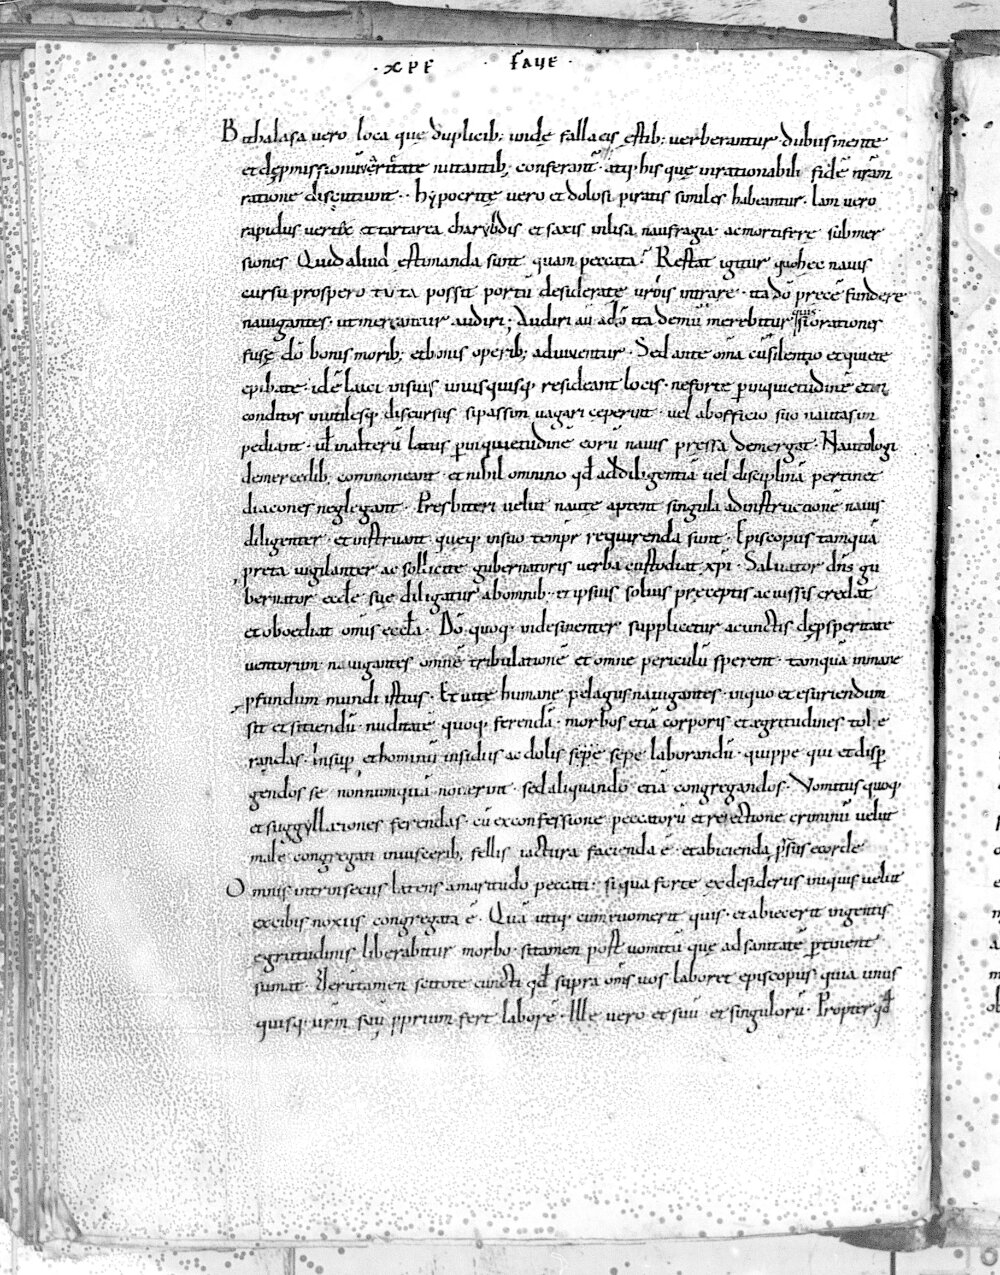 · XPE · FAVE ·
Bithalasa vero loca quę duplicib; undę fallacis ęstib; verberantur · dubiis mente
et dep̱missionũ veritate nutantib; conferant̃ · atq· his quę inrationabili fidẽ nr̃am
ratione discutiunt · hypocritę vero et dolosi piratis similes habeantur · Iam vero
rapidus vertix et tartarea charybdis et saxis inlisa naufragia ac mortiferę submer
siones Quid aliud ęstimanda sunt quam peccata? Restat igitur quo hec navis
cursu prospero tuta possit portũ desideratę urbis intrare · ita dõ precẽ fundere
navigantes · ut mereantur audiri; Audiri au ̃ a dõ ita demũ merebitur quis si orationes
fusę dõ bonis morib; et bonis operib; adiuventur · Sed ante om̃a cũ silentio et quiete
epibatę · idẽ laici in suis unusquisq· resideant locis · ne forte p̱ inquietudinẽ et in
conditos inutilesq· discursus si passim vagari ceperint · vel ab officio suo nautas im
pediant · ul̃ in alterũ latus p̱ inquietudinẽ eorũ navis pressa demergat · Nautologi
de mercedib; commoneant · et nihil omnino qd̃ ad diligentiã vel disciplinã pertinet
diacones neglegant · Presbiteri velut nautę aptent singula ad instructionẽ navis
diligenter · et instruant quęq· in suo temp̃r requirenda sunt · Episcopus tamquã
p̱reta vigilanter ac sollicite gubernatoris verba custodiat xp̃i · Salvator dñs gu
bernator eccl̃ę suę diligatur ab omnib· et ipsius solius preceptis ac iussis credat
et oboediat omis eccl̃a · Dõ quoq· indesinenter supplicetur a cunctis dep̱speritate
ventorum · navigantes omnẽ tribulationẽ et omne periculũ sperent · tamquã inmane
p̱fundum mundi istius · Et vitę humanę pelagus navigantes · in quo et esuriendum
sit et sitiendũ · nuditate quoq· ferendã · morbos etiã corporis et ęgritudines tol e
randas · Insup̱ et hominũ insidiis ac dolis sepe sepe laborandũ · quippe qui et disp̱
gendos se nonnumquã noverint · sed aliquando etiã congregandos · Vomitus quoq·
et suggyllationes ferendas · cũ ex confessione peccatorũ et reiectione criminũ velut
male congregati in viscerib; fellis iactura facienda ẽ · et abicienda p̱r̃sus e corde
Omnis intrinsecus latens amaritudo peccati · si qua forte ex desideriis iniquis velut
ex cibis noxiis congregata ẽ · Quã utiq· cum vomerit quis · et abiecerit ingentis
ęgritudinis liberabitur morbo · si tamen post vomitũ quę ad sanitatẽ p̱tinent
sumat · Verũtamen scitote cuncti qd̃ supra om̃s vos laboret episcopus quia unus
quisq· ur̃m suũ p̱prium fert laborẽ · Ille vero et suũ et singulorũ · Propter qd̃